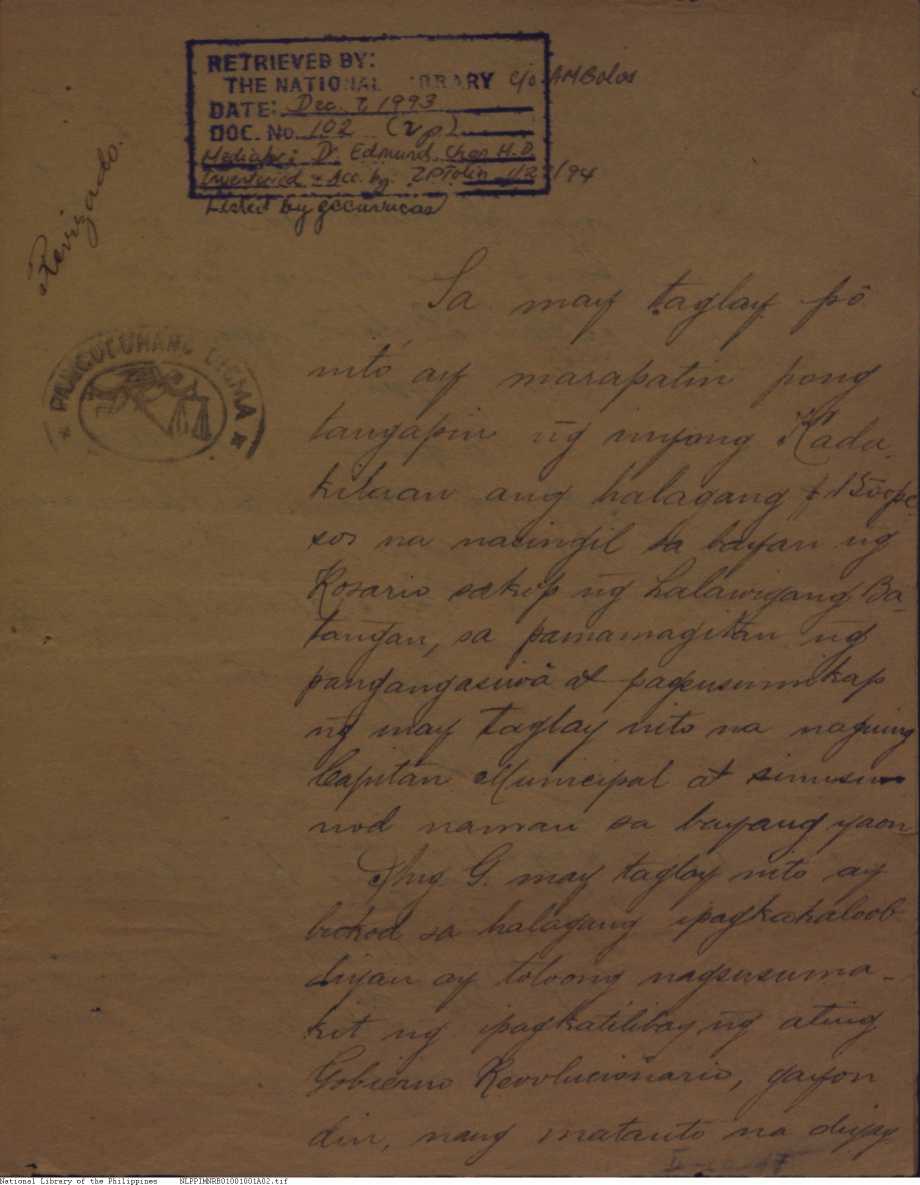 RETRIEVED BY:
THE NATIONAL LIBRARY c/o AMBolos
DATE: Dec. 7, 1993
DOC. No. 102 (2p)
Dr. Edmund Chan M.D.
Inventoried & Acc. by: ZPTolin 1/2 /94
Listed by
Revizado.
PANGULUHANG DIGMA
Sa may taglay pô
nitó ay marapatin pong
tangapin n͠g inyong Kada-
kilaan ang halagang ₱ 1500 pe
sos na nacingil sa bayan n͠g
Rosario sakop n͠g halawigang Ba-
tangan, sa pamamagitan n͠g
pangangasiwà at pagsusumikap
n͠g may taglay nito na naguing
Capitan Municipal at sinusu
nod naman sa bayang yaon
Ang G. may taglay nito ay
bukod sa halagang ipagkakaloob
diyan ay toloong nagsusuma-
kit ng ipagkatibay n͠g ating
Gobierno Revolucionario, gayon
din, nang matanto na